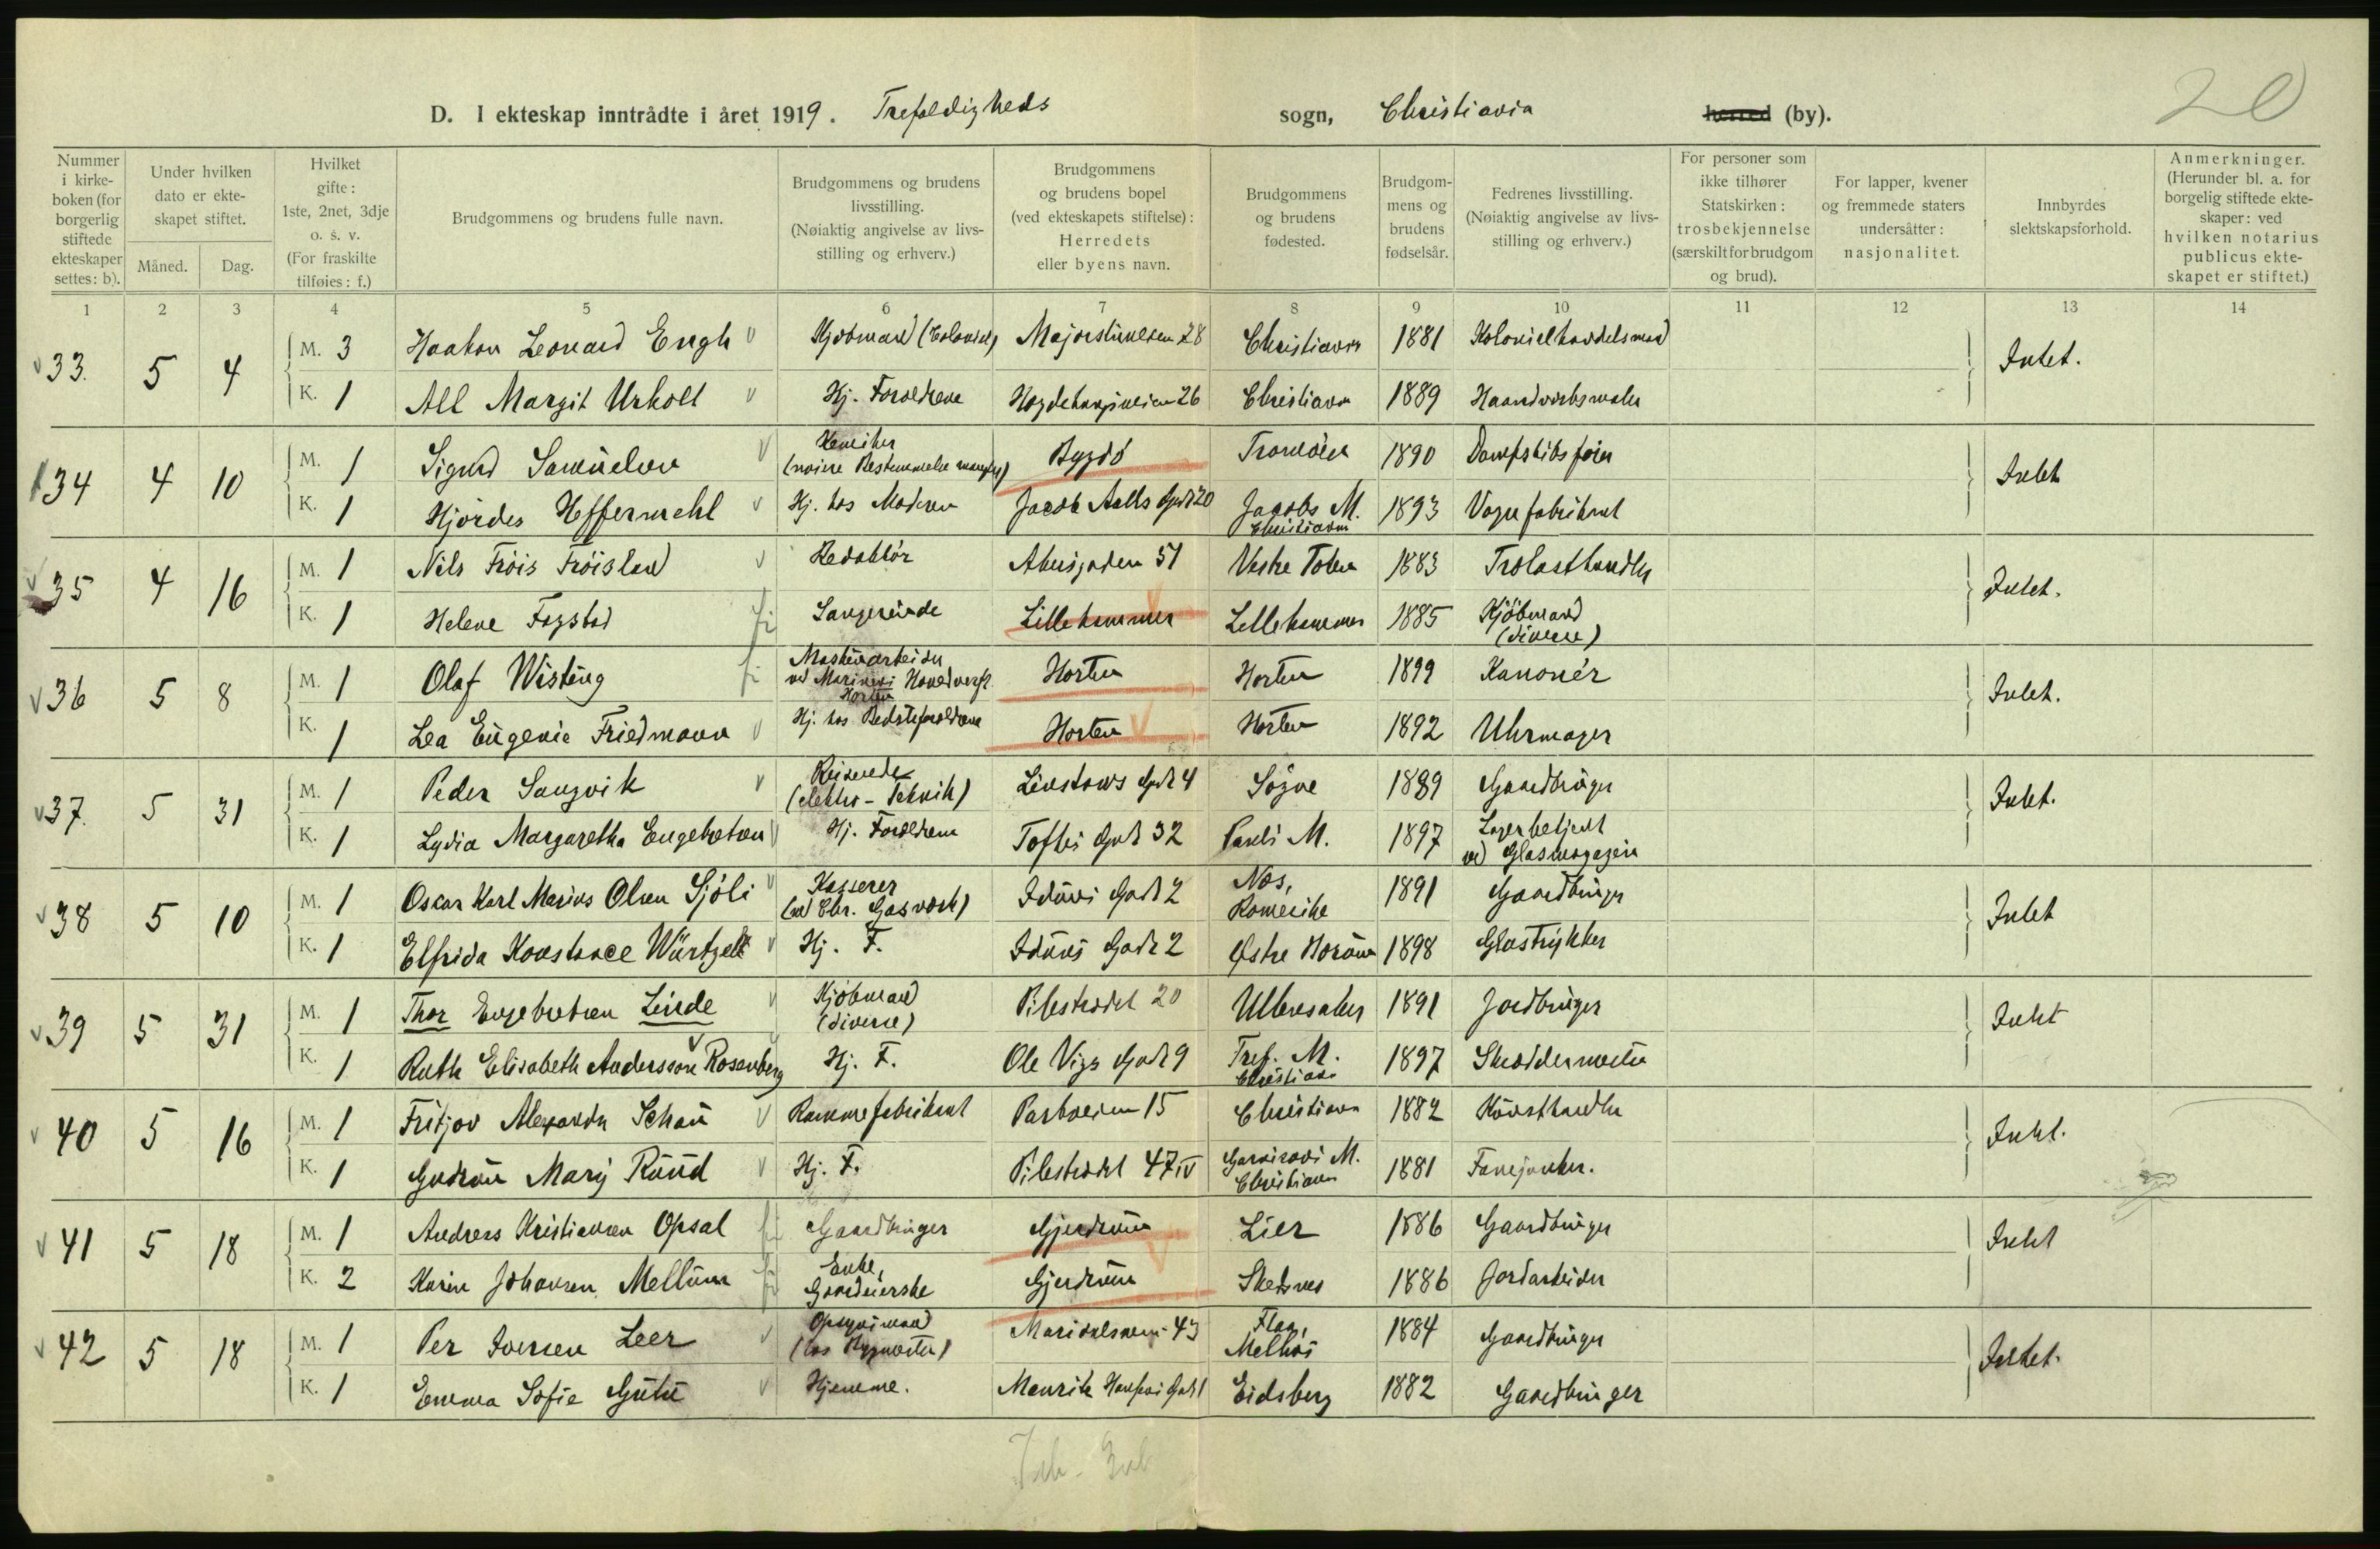 20
D. I ekteskap inntrådte i året 1919. Trefoldigheds sogn, Christiania herred (by).
Nummer i kirke-boken (for borgerlig stiftede ekteskaper settes: b).
Under hvilken dato er ekte-skapet stiftet.
Måned. Dag.
Hvilket gifte: 1ste, 2net, 3dje o. s. v. (For fraskilte tilføies: f.)
Brudgommens og brudens fulle navn.
Brudgommens og brudens livsstilling. (Nøiaktig angivelse av livs-stilling og erhverv.)
Brudgommens og brudens bopel (ved ekteskapets stiftelse): Herredets eller byens navn.
Brudgommens og brudens fødested.
Brudgom-mens og brudens fødselsår.
Fedrenes livsstilling. (Nøiaktig angivelse av livs-stilling og erhverv.)
For personer som ikke tilhører Statskirken: trosbekjennelse (særskilt for brudgom og brud).
For lapper, kvener og fremmede staters undersåtter: nasjonalitet.
Innbyrdes slektskapsforhold.
Anmerkninger. (Herunder bl. a. for borgelig stiftede ekte-skaper: ved hvilken notarius publicus ekte-skapet er stiftet.)
1 2 3 4 5 6 7 8 9 10 11 12 13 14
33. 5 4 M. 3 Haakon Leonard Engh Kjøbmand (Colonial) Majorstuveien 28 Christiania 1881 Kolonielhandelsmand Intet.
K. 1 All Margit Urholt Hj. Forældrene Hegdehaugsveien 26 Christiania 1889 Haandverksmaler
34 4 10 M. 1 Sigurd Samuelsen Kemiker (nøiere Bestemmelse mangler) Bygdö Tromöen 1890 Dampskibsfører Intet
K. 1 Hjördes Heffermehl Hj. hos Moderen Jacob Aalls Gade 20 Jacobs M. Christiania 1893 Vognfabrikant
35 4 16 M. 1 Nils Fröis Fröisland Redaktör Akersgaden 51 Vestre Toten 1883 Trælasthandler Intet.
K. 1 Helene Fagstad Sangerinde Lillehammer Lillehammer 1885 Kjöbmand (diverse)
36 5 8 M. 1 Olaf Wisting Maskinarbeider ved Marinens Hovedverft Horten Horten Horten 1899 Kanonér Intet.
K. 1 Lea Eugenie Friedmann Hj. hos Bedsteforældrene Horten Horten 1892 Uhrmager
37. 5 31 M. 1 Peder Sangvik Reisende (elektro-Teknik) Linstows Gade 4 Sögne 1889 Gaardbruger Intet.
K. 1 Lydia Margaretha Engebretsen Hj. Forældrene Toftes Gade 32 Pauls M. 1897 Lagerbetjent ved Glasmagazin
38 5 10 M. 1 Oscar Karl Marius Olsen Sjöli Kasserer (ved Chr. Gasværk) Iduns Gade 2 Nes, Romerike 1891 Gaardbruger Intet
K. 1 Elfrida Konstance Würtzell Hj. F. Iduns Gade 2 Østre 1898 Glastrykker
39 5 31 M. 1 Thor Engebretsen Linde Kjöbmand (diverse) Pilestrædet 20 Ullensaker 1891 Jordbruger Intet
K. 1 Ruth Elisabeth Andersson Rosenberg Hj. F. Ole Vigs Gade 9 Tref. M. Christiania 1897 Skræddermester
40 5 16 M. 1 Fritjov Alexander Schau Rammefabrikant Parkveien 15 Christiania 1882 Kunsthandler Intet.
K. 1 Gudrun Mary Ruud Hj. F. Pilestrædet 47 IV Garnisons M. Christiania 1881 Fanejunker.
41 5 18 M. 1 Andreas Kristiansen Opsal Gaardbruger Gjerdrum Lier 1886 Gaardbruger Intet
K. 2 Karen Johansen Mellum Enke, Gaardeierske Gjerdrum Skedsmo 1886 Jordarbeider
42 5 18 M. 1 Per Iversen Leer Opsynsmand (hos Bygmester) Maridalsveien 43 Flaa, Melhus 1884 Gaardbruger Intet.
K. 1 Emma Sofie Gutu Hjemme. Mauritz Hansens Gade 1 Eidsberg 1882 Gaardbruger